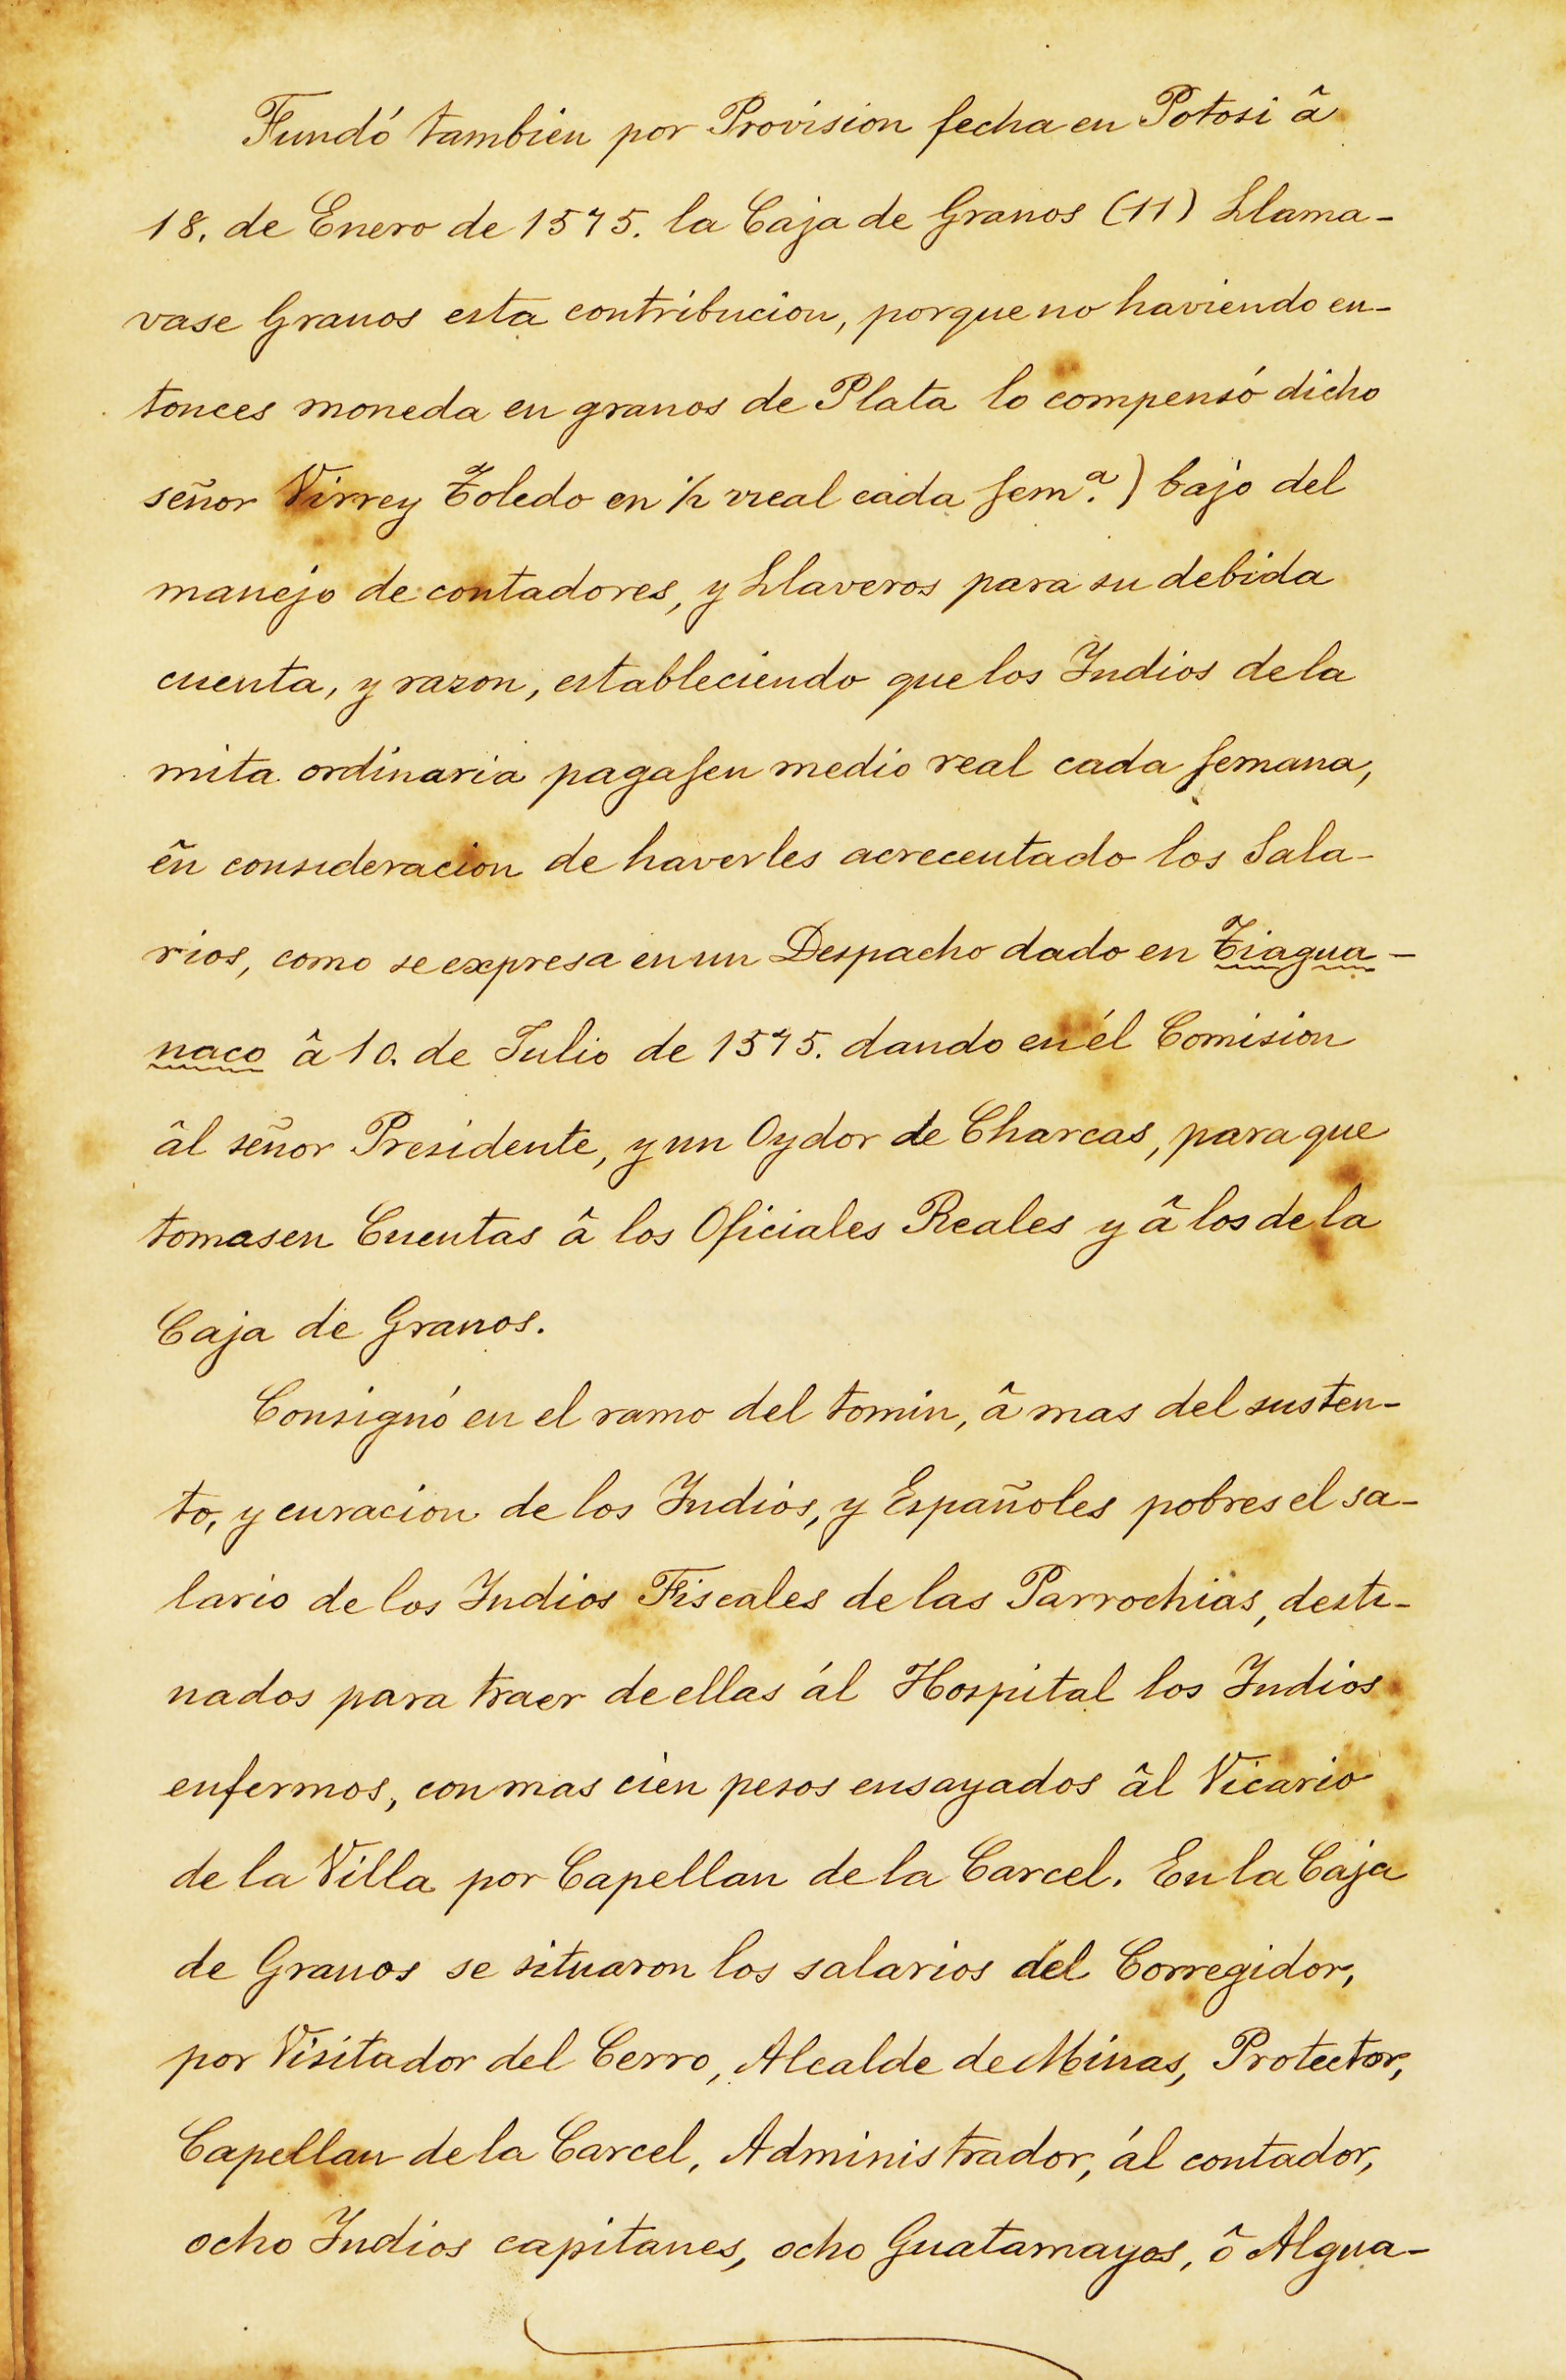 Fundó tambien por Provision fecha en Potosi â
18. de Enero de 1575. la Caja de Granos (11) Llama-
vase Granos esta contribucion, porque no haviendo en-
tonces moneda en granos de Plata lo compensó dicho
señor Virrey Toledo en ½ real cada sem.ª) bajo del
manejo de contadores, y Llaveros para su debida
cuenta, y razon, estableciendo que los Indios de la
mita ordinaria pagasen medio real cada semana,
ên consideracion de haverles acrecentado los Sala-
rios, como se expresa en un Despacho dado en Tiagua-
naco â 10. de Julio de 1575. dando en él Comision
âl señor Presidente, y un Oydor de Charcas, para que
tomasen Cuentas â los Oficiales Reales y â los de la
Caja de Granos.
Consignó en el ramo del tomin, â mas del susten-
to, y curacion de los Indios, y Españoles pobres el sa-
lario de los Indios Fiscales de las Parrochias, desti-
nados para traer de ellas ál Hospital los Indios
enfermos, con mas cien pesos ensayados âl Vicario
de la Villa por Capellan de la Carcel. En la Caja
de Granos se situaron los salarios del Corregidor,
por Visitador del Cerro, Alcalde de Minas, Protector,
Capellan de la Carcel, Administrador, ál contador,
ocho Indios capitanes, ocho Guatamayos, ô Algua-